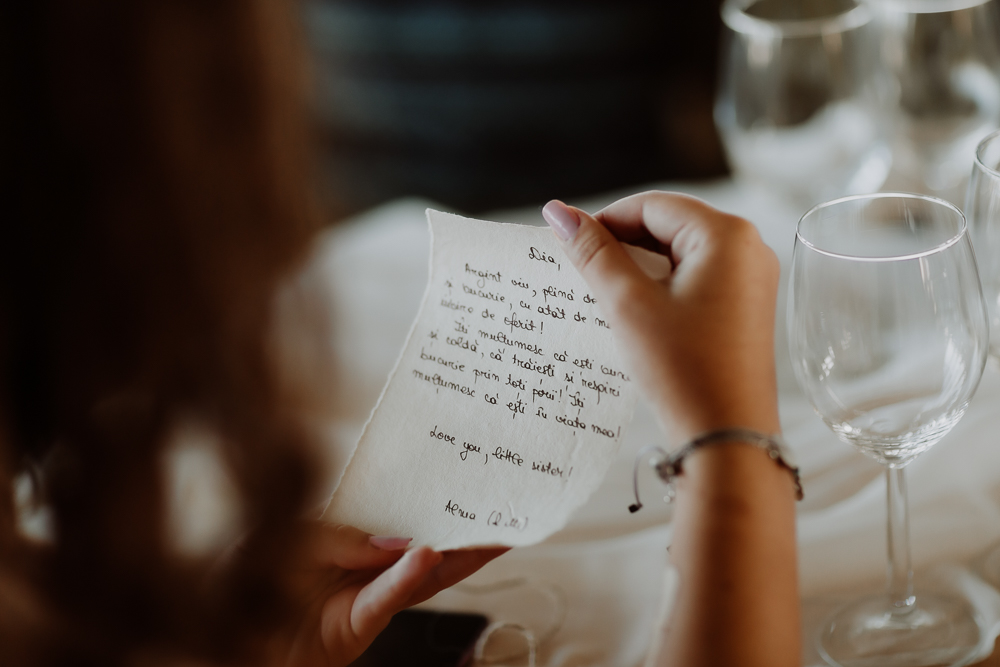 Dia,
Argint viu, plină de
și bucurie, cu atât de mu
iubire de oferit!
Îți mulțumesc că ești bună
și caldă, că trăiești și respiri
bucurie prin toți porii! Îți
mulțumesc că ești în viața mea!
Love you, little sister!
Alma